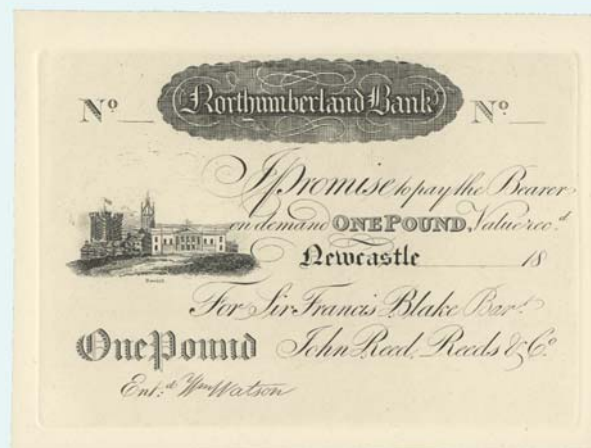 Nº Northumberland Bank Nº
I Promise to pay the Bearer
on demand ONE POUND Value rec.d
Newcastle 18
For Sir Francis Blake Bar.t
One Pound John Reed, Reeds & Co
Ent.d Wm Watson